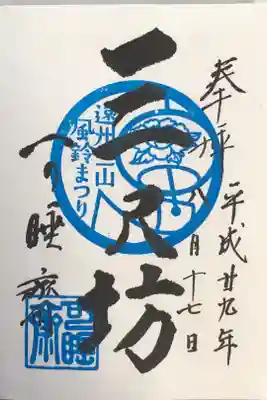 奉拝
平成廿九年
八月十七日
三尺坊
遠州三山
風鈴まつり
可睡斎